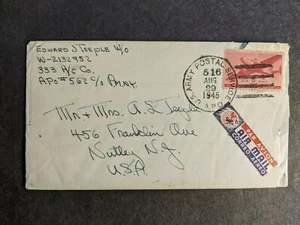 EDWARD J TEEPLE W/O
W-2132952
333 A/C Co.
APO# 562 C/O P.M.N.Y.
U.S. ARMY POSTAL SERVICE
516
AUG
29
1945
A.P.O.
Mr + Mrs. A. L. Teeple
456 Franklin Ave
Nutley N.J.
U.S.A.
PAR AVION
AIR MAIL
CORREO AEREO